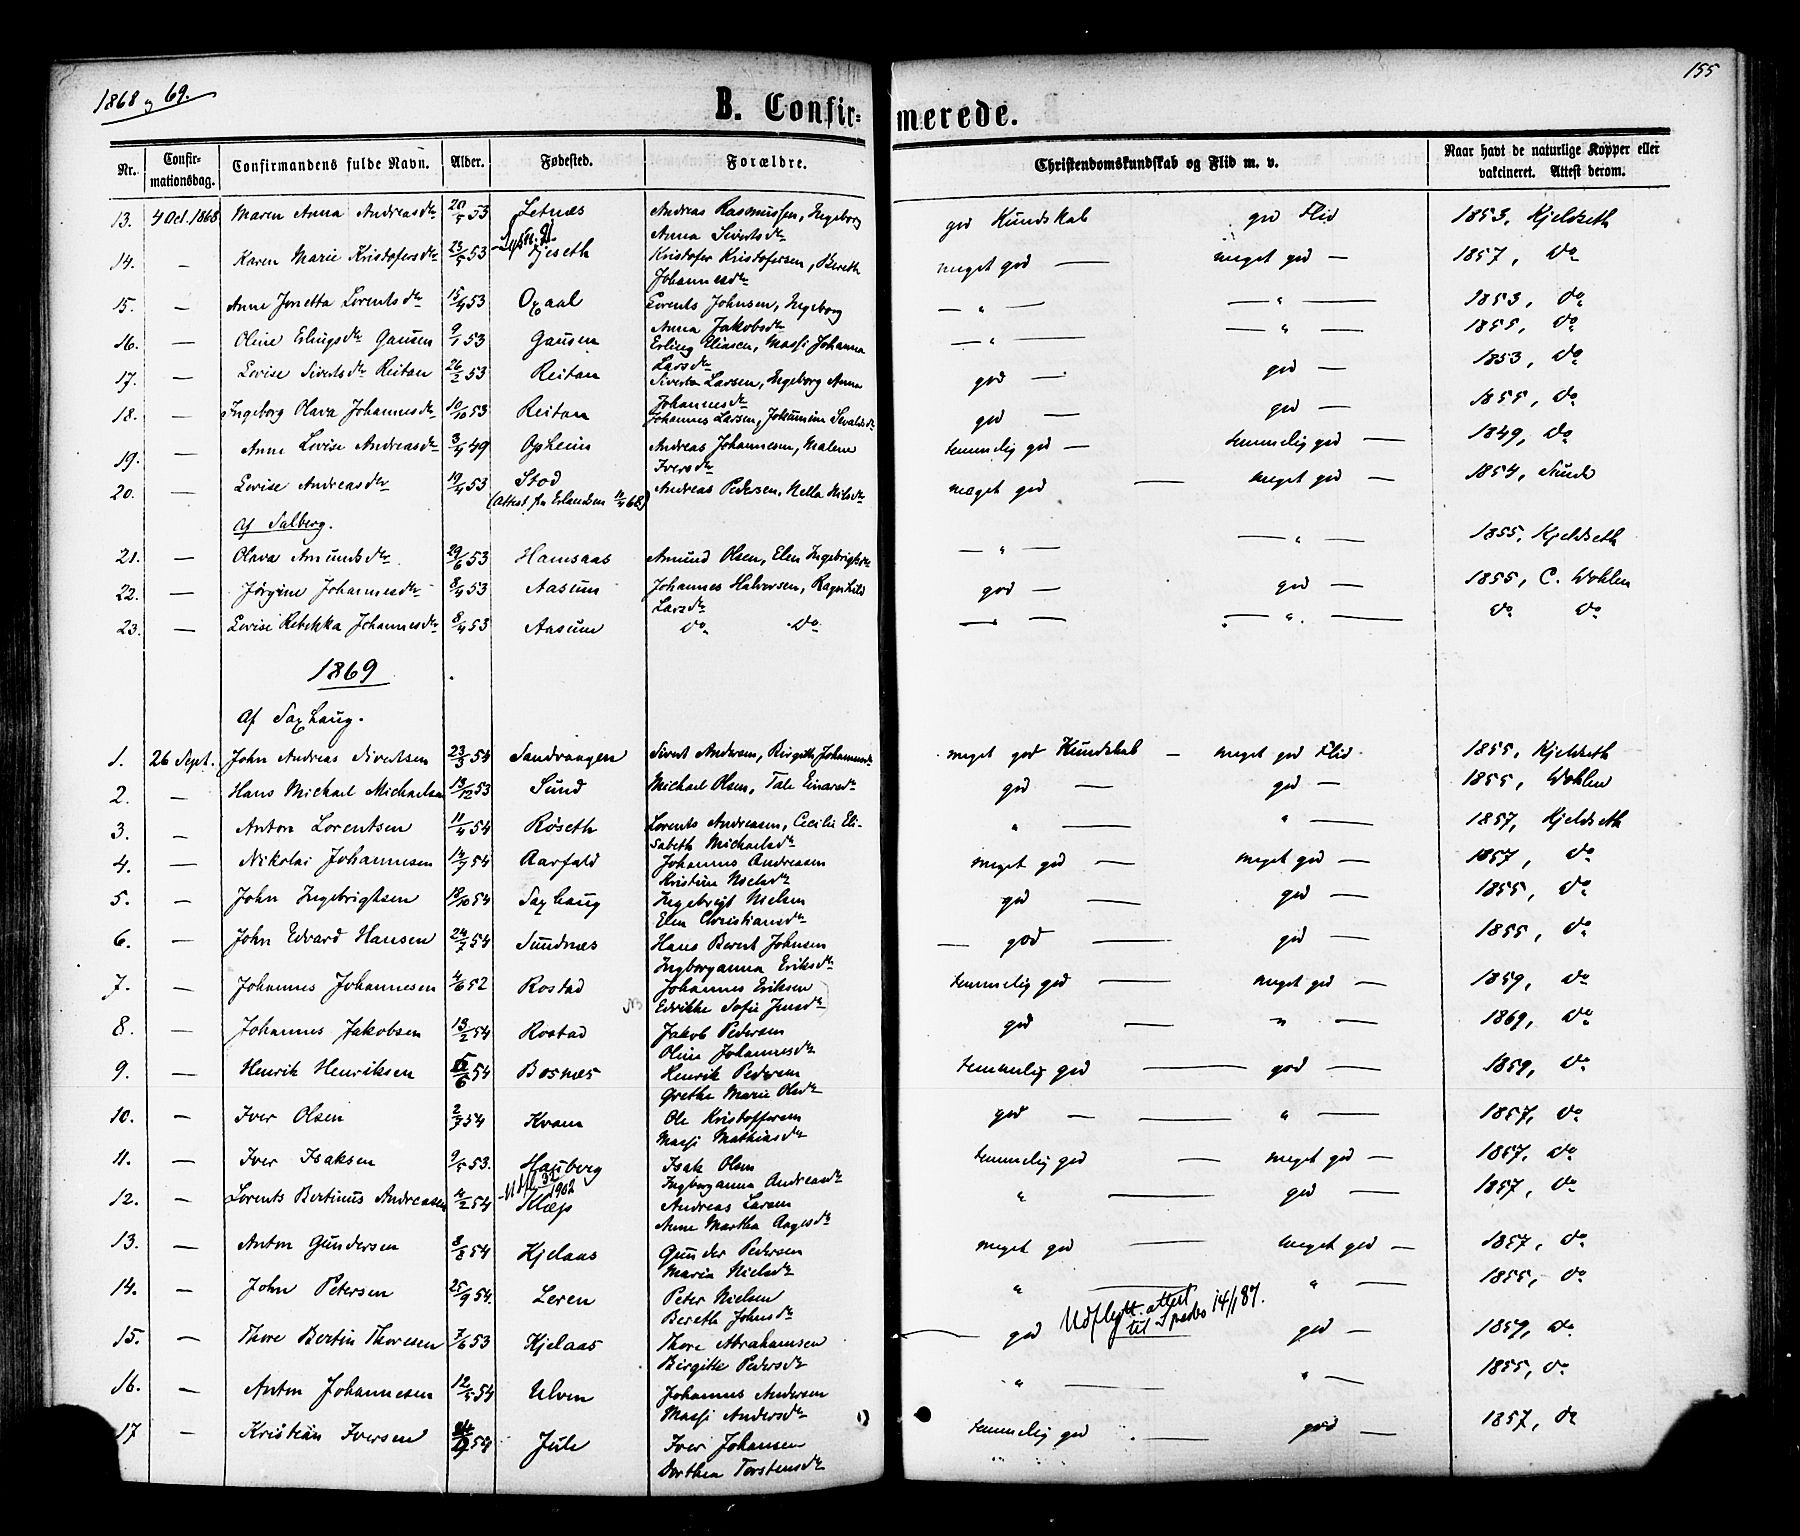 1868 og 69.
155
B. Confirmerede.
Nr. Confirmationsdag. Confirmandens fulde Navn. Alder. Fødested. Forældre. Christendomskundskab og Flid m. v. Naar havt de naturlige Kopper eller vakcineret. Attest derom.
13. 4 Oct. 1868 Maren Anna Andreasdr 20/5 53 Letnæs Andreas Rasmussen, Ingeborg Anna Sivertsdr god Kundskab god Flid 1853, Kjeldseth
14. — Karen Marie Kristofersdr 23/5 53 Kristofer Kristofersen, Bereth Johannesdr meget god — meget god — 1857, do
15. — Anne Jonetta Lorentsdr 15/4 53 Opaal Lorents Johnsen, Ingeborg Anna Jakobsdr — " — — " — 1853, do
16. — Oline Erlingsdr Gausen 9/1 53 Gausen Erling Eliasen, Massi Johanna Larsdr — " — — " — 1855, do
17. — Lovise Sivertsdr Reitan 26/2 53 Reitan Sivert Larsen, Ingeborg Anna Johannesdr god — god — 1853, do
18. — Ingeborg Olava Johannesdr 10/10 53 Reitan Johannes Larsen, Sevaldsdr god — god — 1855, do
19. — Anne Lovise Andreasdr 3/4 49 Opheim Andreas Johannesen, Malene Iversdr temmelig god — temmelig god — 1849, do
20. — Lovise Andreasdr 19/4 53 Stod (Attest fra Erlandsen 68) Andreas Pedersen, Nella Nilsdr meget god — meget god — 1854, Sunde
Af Salberg.
21. — Olava Amundsdr 29/6 53 Hamsaas Amund Olsen, Elen Ingebrigtsdr — " — — " — 1855, Kjeldseth
22. — Jørgine Johannesdr 8/4 53 Aasum Johannes Halvorsen, Ragnhild Larsdr god — god — 1855, C. Wohlen
23. — Lovise Rebekka Johannesdr 8/4 53 Aasum do do — " — — " — do do
1869
Af Saxhaug.
1. 26 Sept. John Andreas Sivertsen 23/3 54 Sandvaagen Sivert Andersen, Birgitte Johannesdr meget god Kundskab — meget god Flid 1855, Kjeldseth
2. — Hans Michael Michaelsen 13/12 53 Sund Michael Olsen, Tale Einarsdr god — god — 1855, Wohlen
3. — Anton Lorentsen 11/4 54 Røseth Lorents Andreasen, Cecilie Elisabeth Michaelsdr " — " — 1857, Kjeldseth
4. — Nikolai Johannesen 14/7 54 Aarfald Johannes Andreasen Kristine Nielsdr meget god — meget god — 1857, do
5. — John Ingebrigtsen 18/10 54 Saxhaug Ingebrigt Nielsen Elen Christiansdr god — god — 1855, do
6. — John Edvard Hansen 24/7 54 Sundnæs Hans Berent Johnsen Ingeborganna Eriksdr — god — god — 1855, do
7. — Johannes Johannesen 4/6 52 Rostad Johannes Eriksen NB Edrikke Sofie Jensdr temmelig god — meget god — 1859, do
8. — Johannes Jakobsen 13/2 54 Rostad Jakob Pedersen Oline Johannesdr god — " — 1869, do
9. — Henrik Henriksen /6 54 Bosnæs Henrik Pedersen Grethe Marie Olsdr temmelig god — god — 1859, do
10. — Iver Olsen 2/7 54 Kvam Ole Kristoffersen Massi Mathiasdr god — " — 1857, do
11. — Iver Isaksen 9/5 53. Hauberg Isak Olsen Ingborganna Andreasdr temmelig god — meget god — 1857, do
12. — Lorents Bertinus Andreassen 4/2 54 Utfl. 32 1902 Klæp Andreas Larsen Anne Martha Aagesdr " — god — 1857, do
13. — Anton Gundersen 8/8 54 Kjelaas Gunder Pedersen Maria Nielsdr meget god — meget god — 1857, do
14. — John Petersen 25/9 54. Leren Peter Nielsen Bereth Johnsdr " — " — 1855, do
15. — Thore Bertin Thoresen 7/6 53 Kjelaas Thore Abrahamsen Birgitte Pedersdr god Udflytt. attest til Sparbo 14/1 87. god — 1859, do
16. — Anton Johannesen 12/5 54 Ulven Johannes Andersen Massi Andersdr " — " — 1855, do
17 — Kristian Iversen 54 Jule Iver Johansen Dorthea Torstensdr temmelig god — god — 1857, do